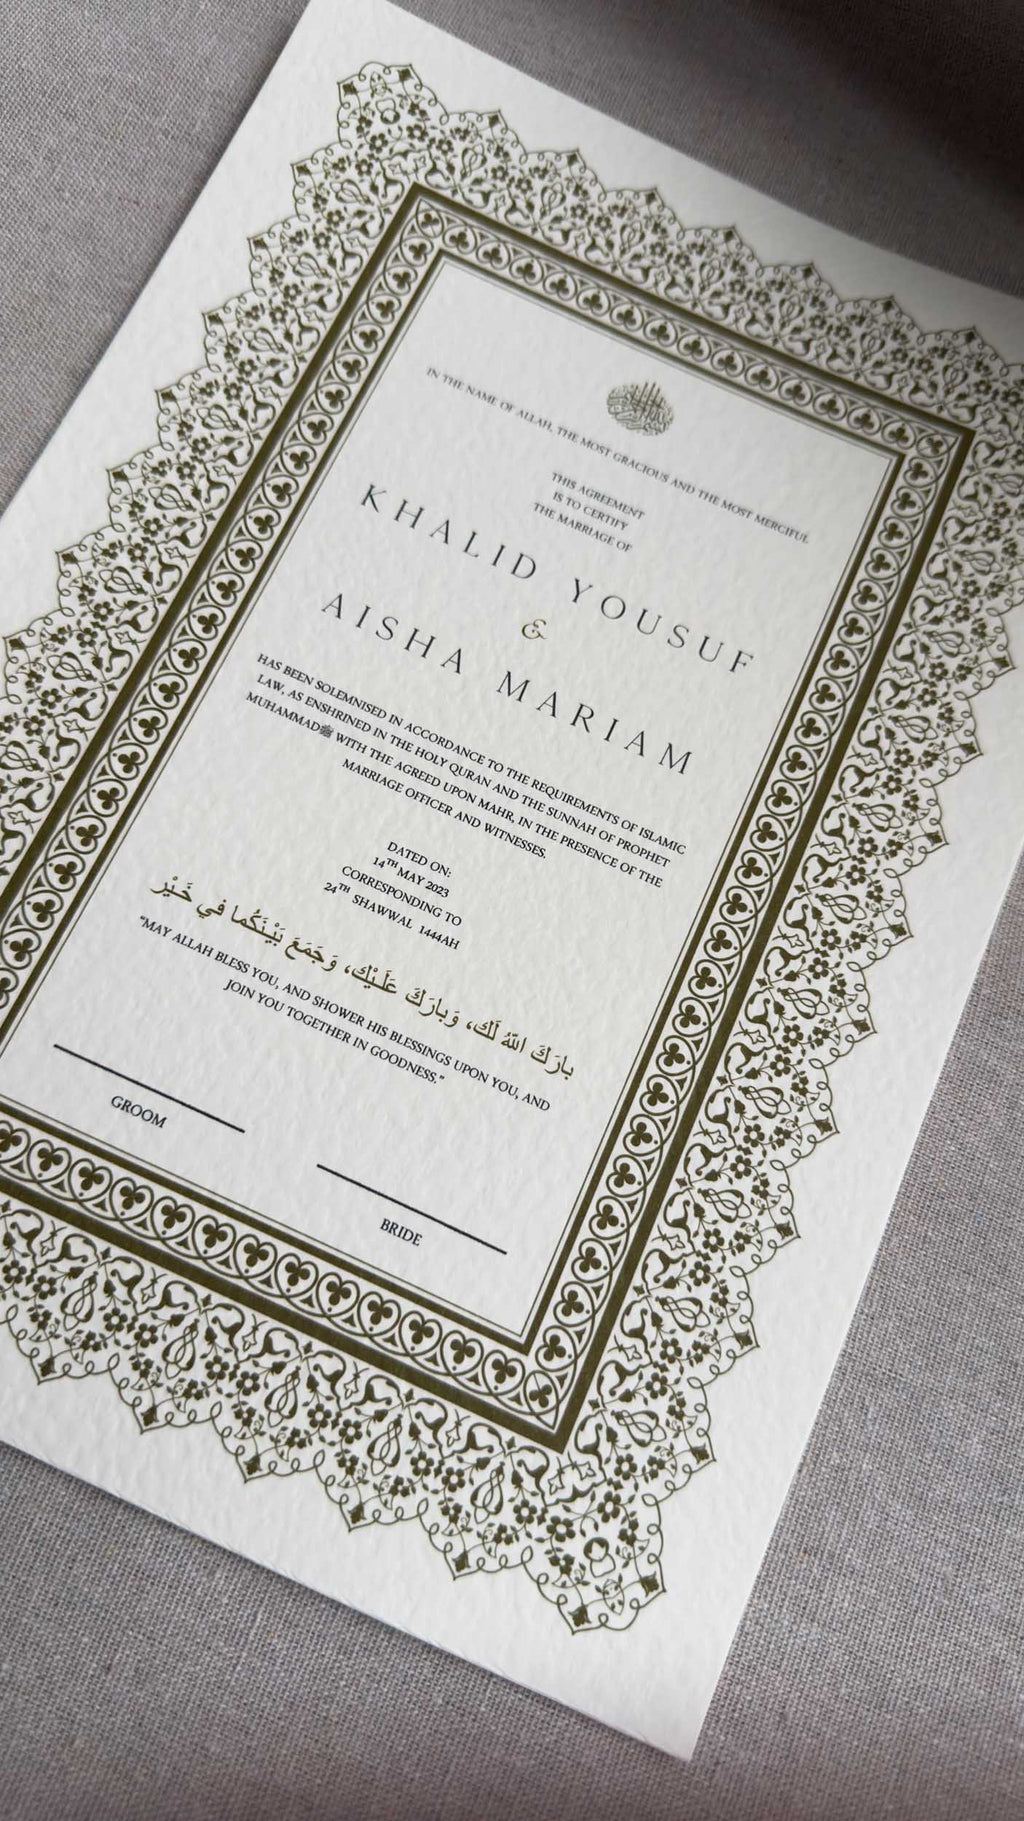 IN THE NAME OF ALLAH, THE MOST GRACIOUS AND THE MOST MERCIFUL
THIS AGREEMENT
IS TO CERTIFY
THE MARRIAGE OF
KHALID YOUSUF
&
AISHA MARIAM
HAS BEEN SOLEMNISED IN ACCORDANCE TO THE REQUIREMENTS OF ISLAMIC
LAW, AS ENSHRINED IN THE HOLY QURAN AND THE SUNNAH OF PROPHET
MUHAMMADﷺ WITH THE AGREED UPON MAHR, IN THE PRESENCE OF THE
MARRIAGE OFFICER AND WITNESSES.
DATED ON:
14TH MAY 2023
CORRESPONDING TO
24TH SHAWWAL 1444AH
بارَكَ اللهُ لَك، وَبارَكَ عَلَـيْك، وَجَمَعَ بَيْنَكُما في خَـيْر
"MAY ALLAH BLESS YOU, AND SHOWER HIS BLESSINGS UPON YOU, AND
JOIN YOU TOGETHER IN GOODNESS."
GROOM
BRIDE